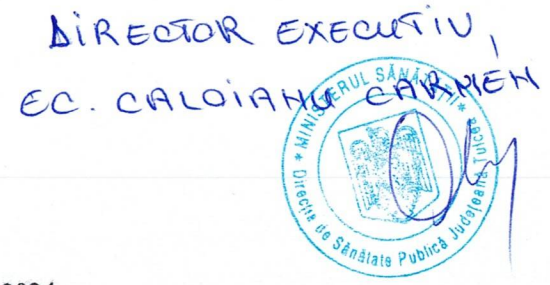 DIRECTOR EXECUTIV,
EC. CALOIANU CARMEN
* MINISTERUL SĂNĂTĂȚII *
Direcția de Sănătate Publică Județeană Tulcea